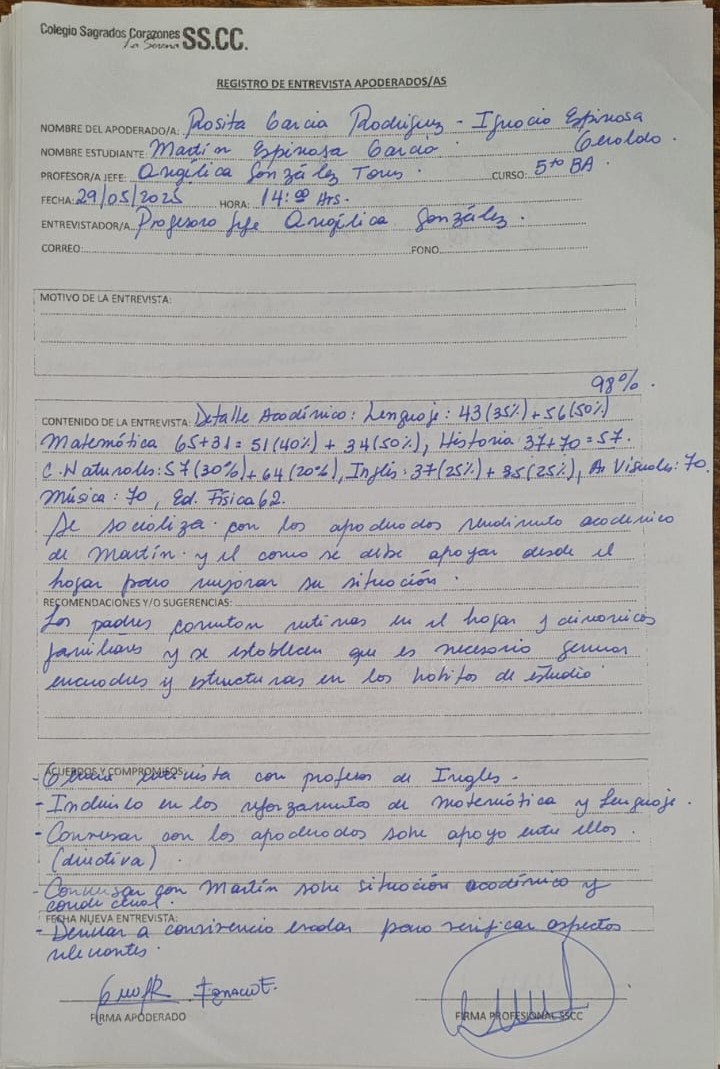 Colegio Sagrados Corazones SS.CC.
La Serena
REGISTRO DE ENTREVISTA APODERADOS/AS
NOMBRE DEL APODERADO/A: Rosita Garcia Rodríguez - Ignacio Espinosa
Geraldo.
NOMBRE ESTUDIANTE: Martín Espinosa Garcia.
PROFESOR/A JEFE: Angélica González Torres. CURSO: 5to BA.
FECHA: 29/05/2025 HORA: 14:00 Hrs.
ENTREVISTADOR/A Profesora Jefe Angélica González.
CORREO: FONO.
MOTIVO DE LA ENTREVISTA:
98%.
CONTENIDO DE LA ENTREVISTA: Detalle Académico: Lenguaje: 43(35%)+56(50%)
Matemática 65+31=51(40%) + 34(50%), Historia 37+70=57.
C. Naturales: 57(30%)+64(20%), Inglés: 37(25%)+35(25%), Ar Visuales: 70.
Música: 70, Ed. Física 62.
Se socializa con los apoderados rendimiento academico
de Martín y el como se debe apoyar desde el
hogar para mejorar su situación.
RECOMENDACIONES Y/O SUGERENCIAS:
Los padres comentan rutinas en el hogar y dinamicas
familiares y se establecen que es necesario generar
encuadres y estructuras en los habitos de estudio
ACUERDOS Y COMPROMISOS:
- entrevista con profesor de Ingles.
- Incluirlo en los reforzamientos de matemática y Lenguaje.
- Conversar con los apoderados sobre apoyo entre ellos.
(directiva).
- Conversar con Martín sobre situación académico y
conductual.
FECHA NUEVA ENTREVISTA:
- Derivar a convivencia escolar para verificar aspectos
relevantes.
Ignacio E.
FIRMA APODERADO FIRMA PROFESIONAL SSCC